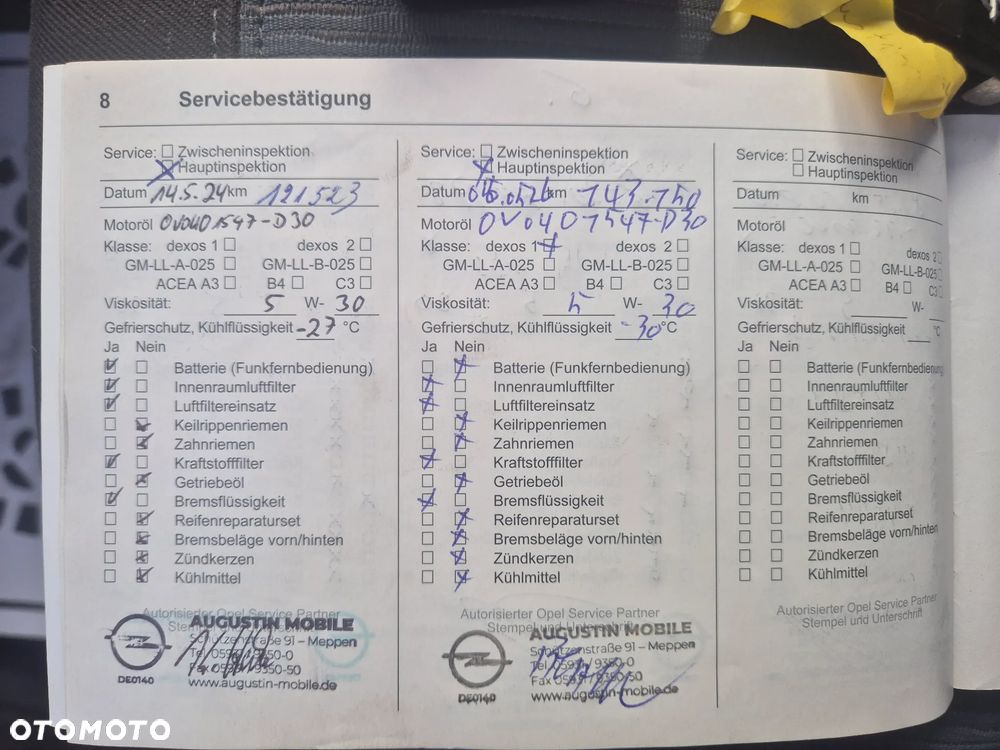 8 Servicebestätigung
Service: Zwischeninspektion
Hauptinspektion
Datum 14.5.24 km 121523
Motoröl OV0401547-D30
Klasse: dexos 1 dexos 2
GM-LL-A-025 GM-LL-B-025
ACEA A3 B4 C3
Viskosität: 5 W- 30
Gefrierschutz, Kühlflüssigkeit -27 °C
Ja Nein
Batterie (Funkfernbedienung)
Innenraumluftfilter
Luftfiltereinsatz
Keilrippenriemen
Zahnriemen
Kraftstofffilter
Getriebeöl
Bremsflüssigkeit
Reifenreparaturset
Bremsbeläge vorn/hinten
Zündkerzen
Kühlmittel
Autorisierter Opel Service Partner
AUGUSTIN MOBILE
Schützenstraße 91 – Meppen
www.augustin-mobile.de
DE0140
Service: Zwischeninspektion
Hauptinspektion
Datum km 143.150
Motoröl OV0401547-D30
Klasse: dexos 1 dexos 2
GM-LL-A-025 GM-LL-B-025
ACEA A3 B4 C3
Viskosität: 5 W- 30
Gefrierschutz, Kühlflüssigkeit -30 °C
Ja Nein
Batterie (Funkfernbedienung)
Innenraumluftfilter
Luftfiltereinsatz
Keilrippenriemen
Zahnriemen
Kraftstofffilter
Getriebeöl
Bremsflüssigkeit
Reifenreparaturset
Bremsbeläge vorn/hinten
Zündkerzen
Kühlmittel
Autorisierter Opel Service Partner
Stempel und Unterschrift
AUGUSTIN MOBILE
Schützenstraße 91 – Meppen
www.augustin-mobile.de
DE0140
Service: Zwischeninspektion
Hauptinspektion
Datum km
Motoröl
Klasse: dexos 1 dexos 2
GM-LL-A-025 GM-LL-B-025
ACEA A3 B4 C3
Viskosität: W-
Gefrierschutz, Kühlflüssigkeit °C
Ja Nein
Batterie (Funkfernbedienung
Innenraumluftfilter
Luftfiltereinsatz
Keilrippenriemen
Zahnriemen
Kraftstofffilter
Getriebeöl
Bremsflüssigkeit
Reifenreparaturset
Bremsbeläge vorn/hinten
Zündkerzen
Kühlmittel
Autorisierter Opel Service Partner
Stempel und Unterschrift
OTOMOTO